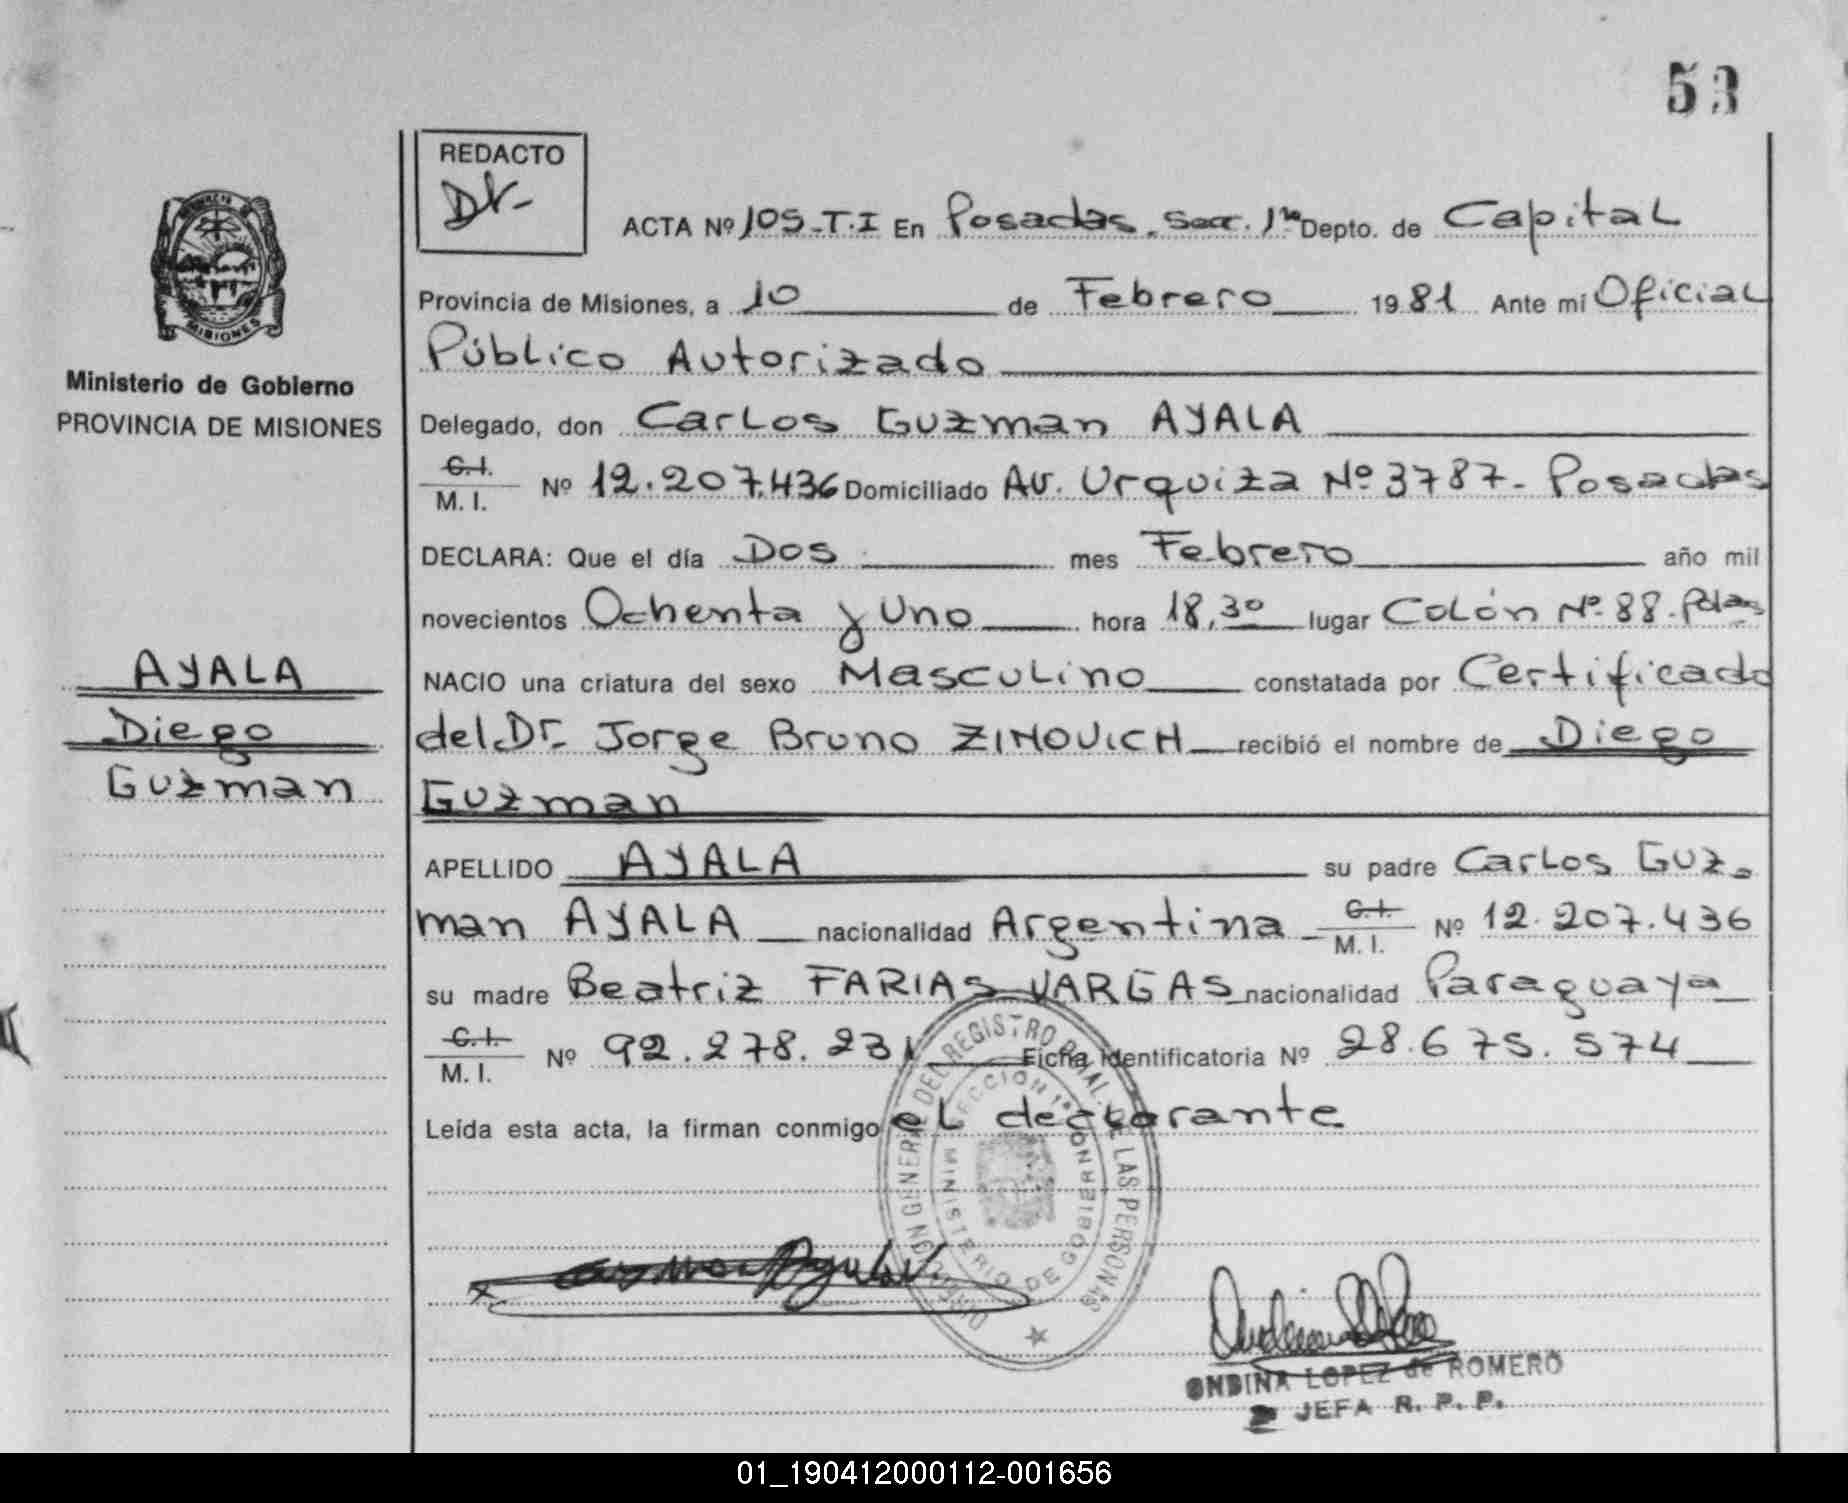 53
REDACTO
ACTA Nº 105-T.I En Posadas. Secc. 1ra Depto. de Capital
Provincia de Misiones, a 10 de Febrero 1981 Ante mi Oficial
Público Autorizado
Delegado, don Carlos Guzman AYALA
C.I.
M. I. Nº 12.207.436 Domiciliado Av. Urquiza Nº 3787- Posadas
DECLARA: Que el día Dos mes Febrero año mil
novecientos Ochenta y Uno hora 18,30 lugar Colón Nº 88. Pdas
NACIO una criatura del sexo Masculino constatada por Certificado
del Dr. Jorge Bruno ZINOVICH recibió el nombre de Diego
Guzman
APELLIDO AYALA su padre Carlos Guz-
man AYALA nacionalidad Argentina C.I.
M. I. Nº 12.207.436
su madre Beatriz FARIAS VARGAS nacionalidad Paraguaya
C.I.
M. I. Nº 92.278.231 Ficha Identificatoria Nº 28.675.574
Leída esta acta, la firman conmigo el declarante
MISIONES
Ministerio de Gobierno
PROVINCIA DE MISIONES
AYALA
Diego
Guzman
DIRECCION GENERAL DEL REGISTRO PCIAL. DE LAS PERSONAS
SECCION 1ª
MINISTERIO DE GOBIERNO
ONDINA LOPEZ de ROMERO
JEFA R. P. P.
01_190412000112-001656